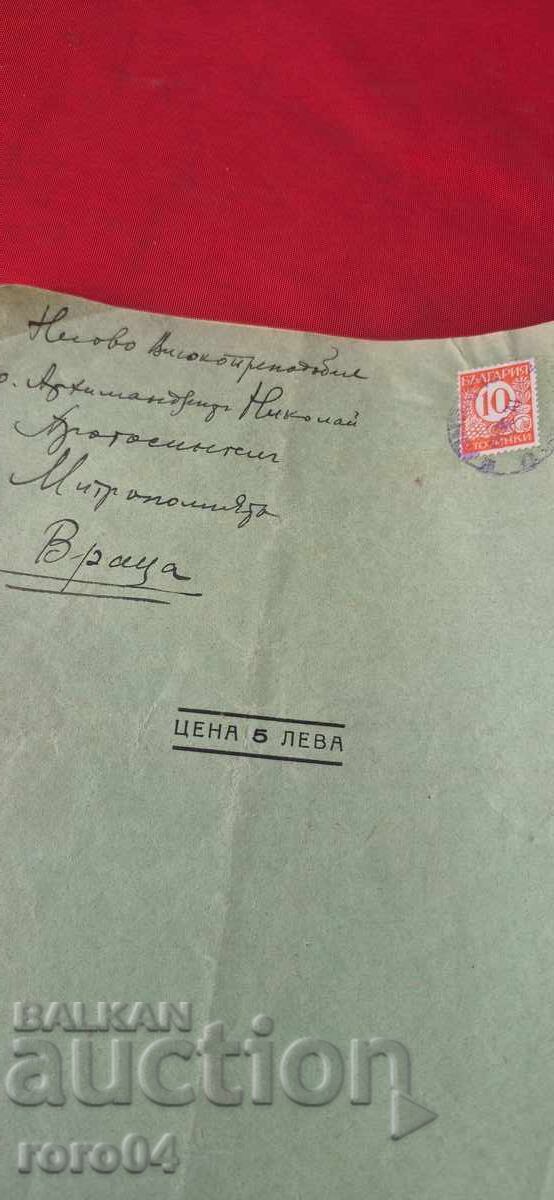 Негово Високопреподобие
о. Архимандритъ Николай
Протосингел
Митрополията
Враца
БЪЛГАРИЯ
10
СТОТИНКИ
ЦЕНА 5 ЛЕВА
BALKAN
auction
roro04